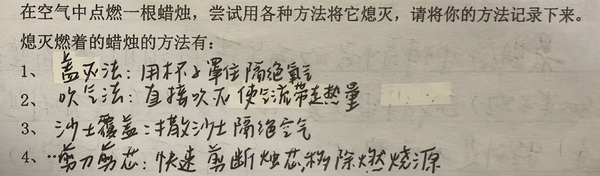 在空气中点燃一根蜡烛，尝试用各种方法将它熄灭，请将你的方法记录下来。
熄灭燃着的蜡烛的方法有：
1、盖灭法：用杯子罩住隔绝氧气
2、吹气法：直接吹灭使气流带走热量
3、沙土覆盖：撒沙土隔绝空气
4、剪刀剪芯：快速剪断烛芯，移除燃烧源